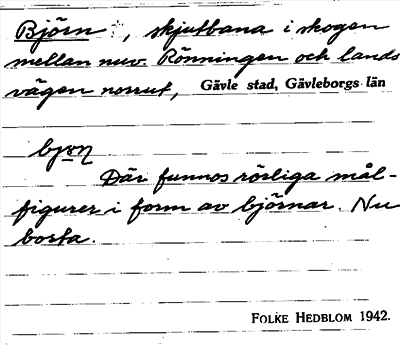 Björn, skjutbana i skogen
mellan nuv. Rönningen och lands
vägen norrut, Gävle stad, Gävleborgs län
Där funnos rörliga mål-
figurer i form av björnar. Nu
borta.
FOLKE HEDBLOM 1942.